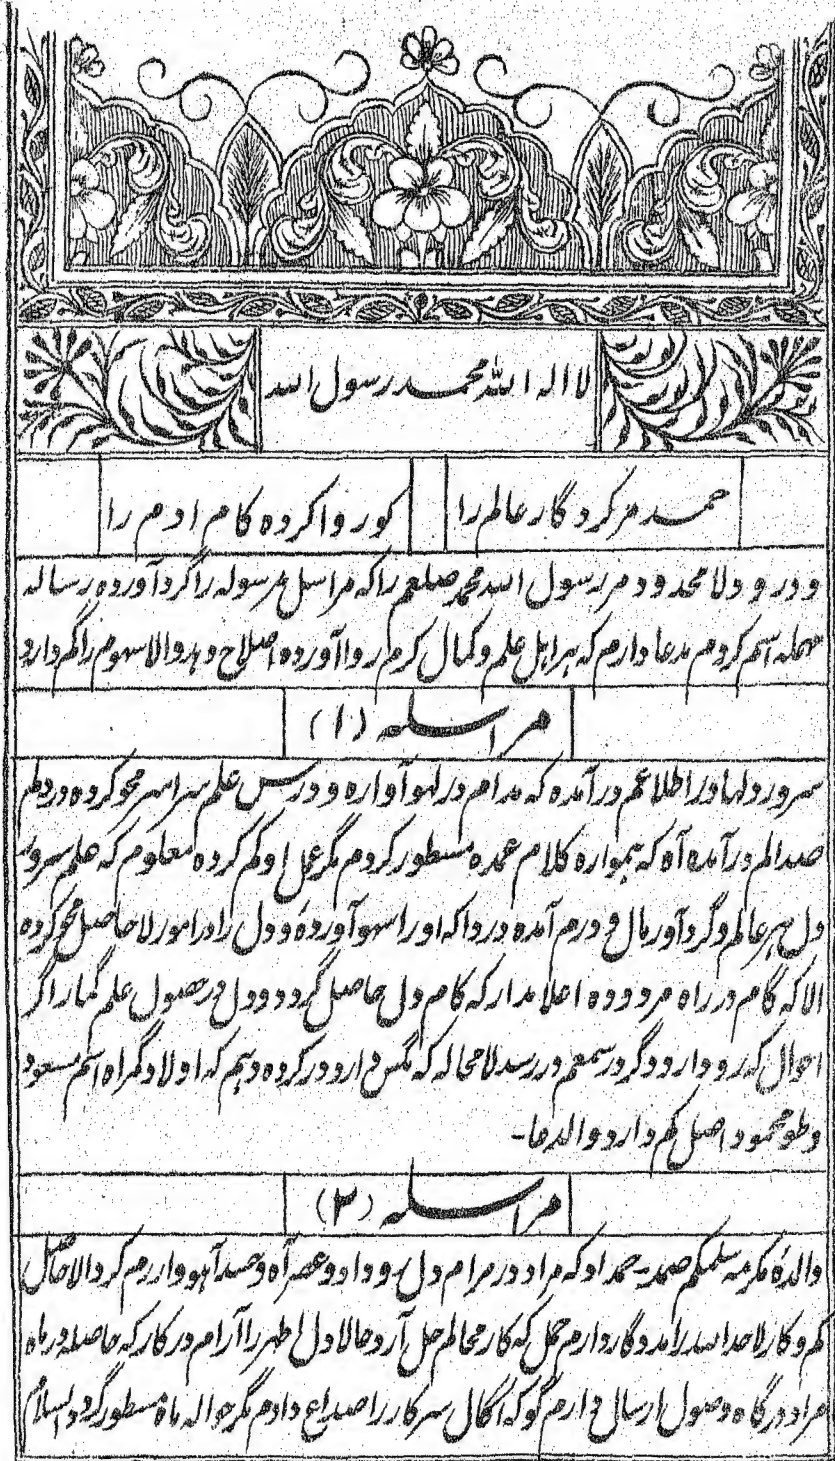 لا اله الا الله محمد رسول الله
حمد مر کردگار عالم را کو روا کرده کام ادم را
و درود لا محدود مر رسول الله محمد صلعم را که مراسل مرسوله را گرد آورده رساله
مهمله اسم کردم مدعا دارم که هر اهل علم و کمال کرم روا آورده اصلاح دهد والا سهوم را گم دارد
مراسله (۱)
سرور دلها در اطلاعم درآمده که مدام در لهو آواره و درس علم سراسر محو کرده در دلم
صد الم درآمده آه که همواره کلام عمده مسطور کردم مگر عمل او گم کرده معلوم که علم سرور
دل هر عالم و گرد آور مال و درم آمده دردا که او را سهو آورده و دل را در امور لا حاصل محو کرده
الا که گام در راه مردود اعلا مدار که کام دل حاصل گردد و دل در حصول علم گمار اگر
احوال که رو دارد دگر در سمعم در رسد لا محاله که مگس وار دور کرده دهم که اولاد گمراه اسم مسعود
محمود اصل گم دارد والدعا-
مراسله (۲)
والدهٔ مکرمه سلمکم صمد - حمد او که مراد در مرام دل
کم و کار لا حد الله را مددگار دارم که کار محالم حل آرد حالا دل اطهر را آرام در کار که حاصله در ماه
مراد درگاه وصول ارسال دارم گو که اکمال سرکار را صداع دادم مگر حواله ماه مسطور گردد والسلام